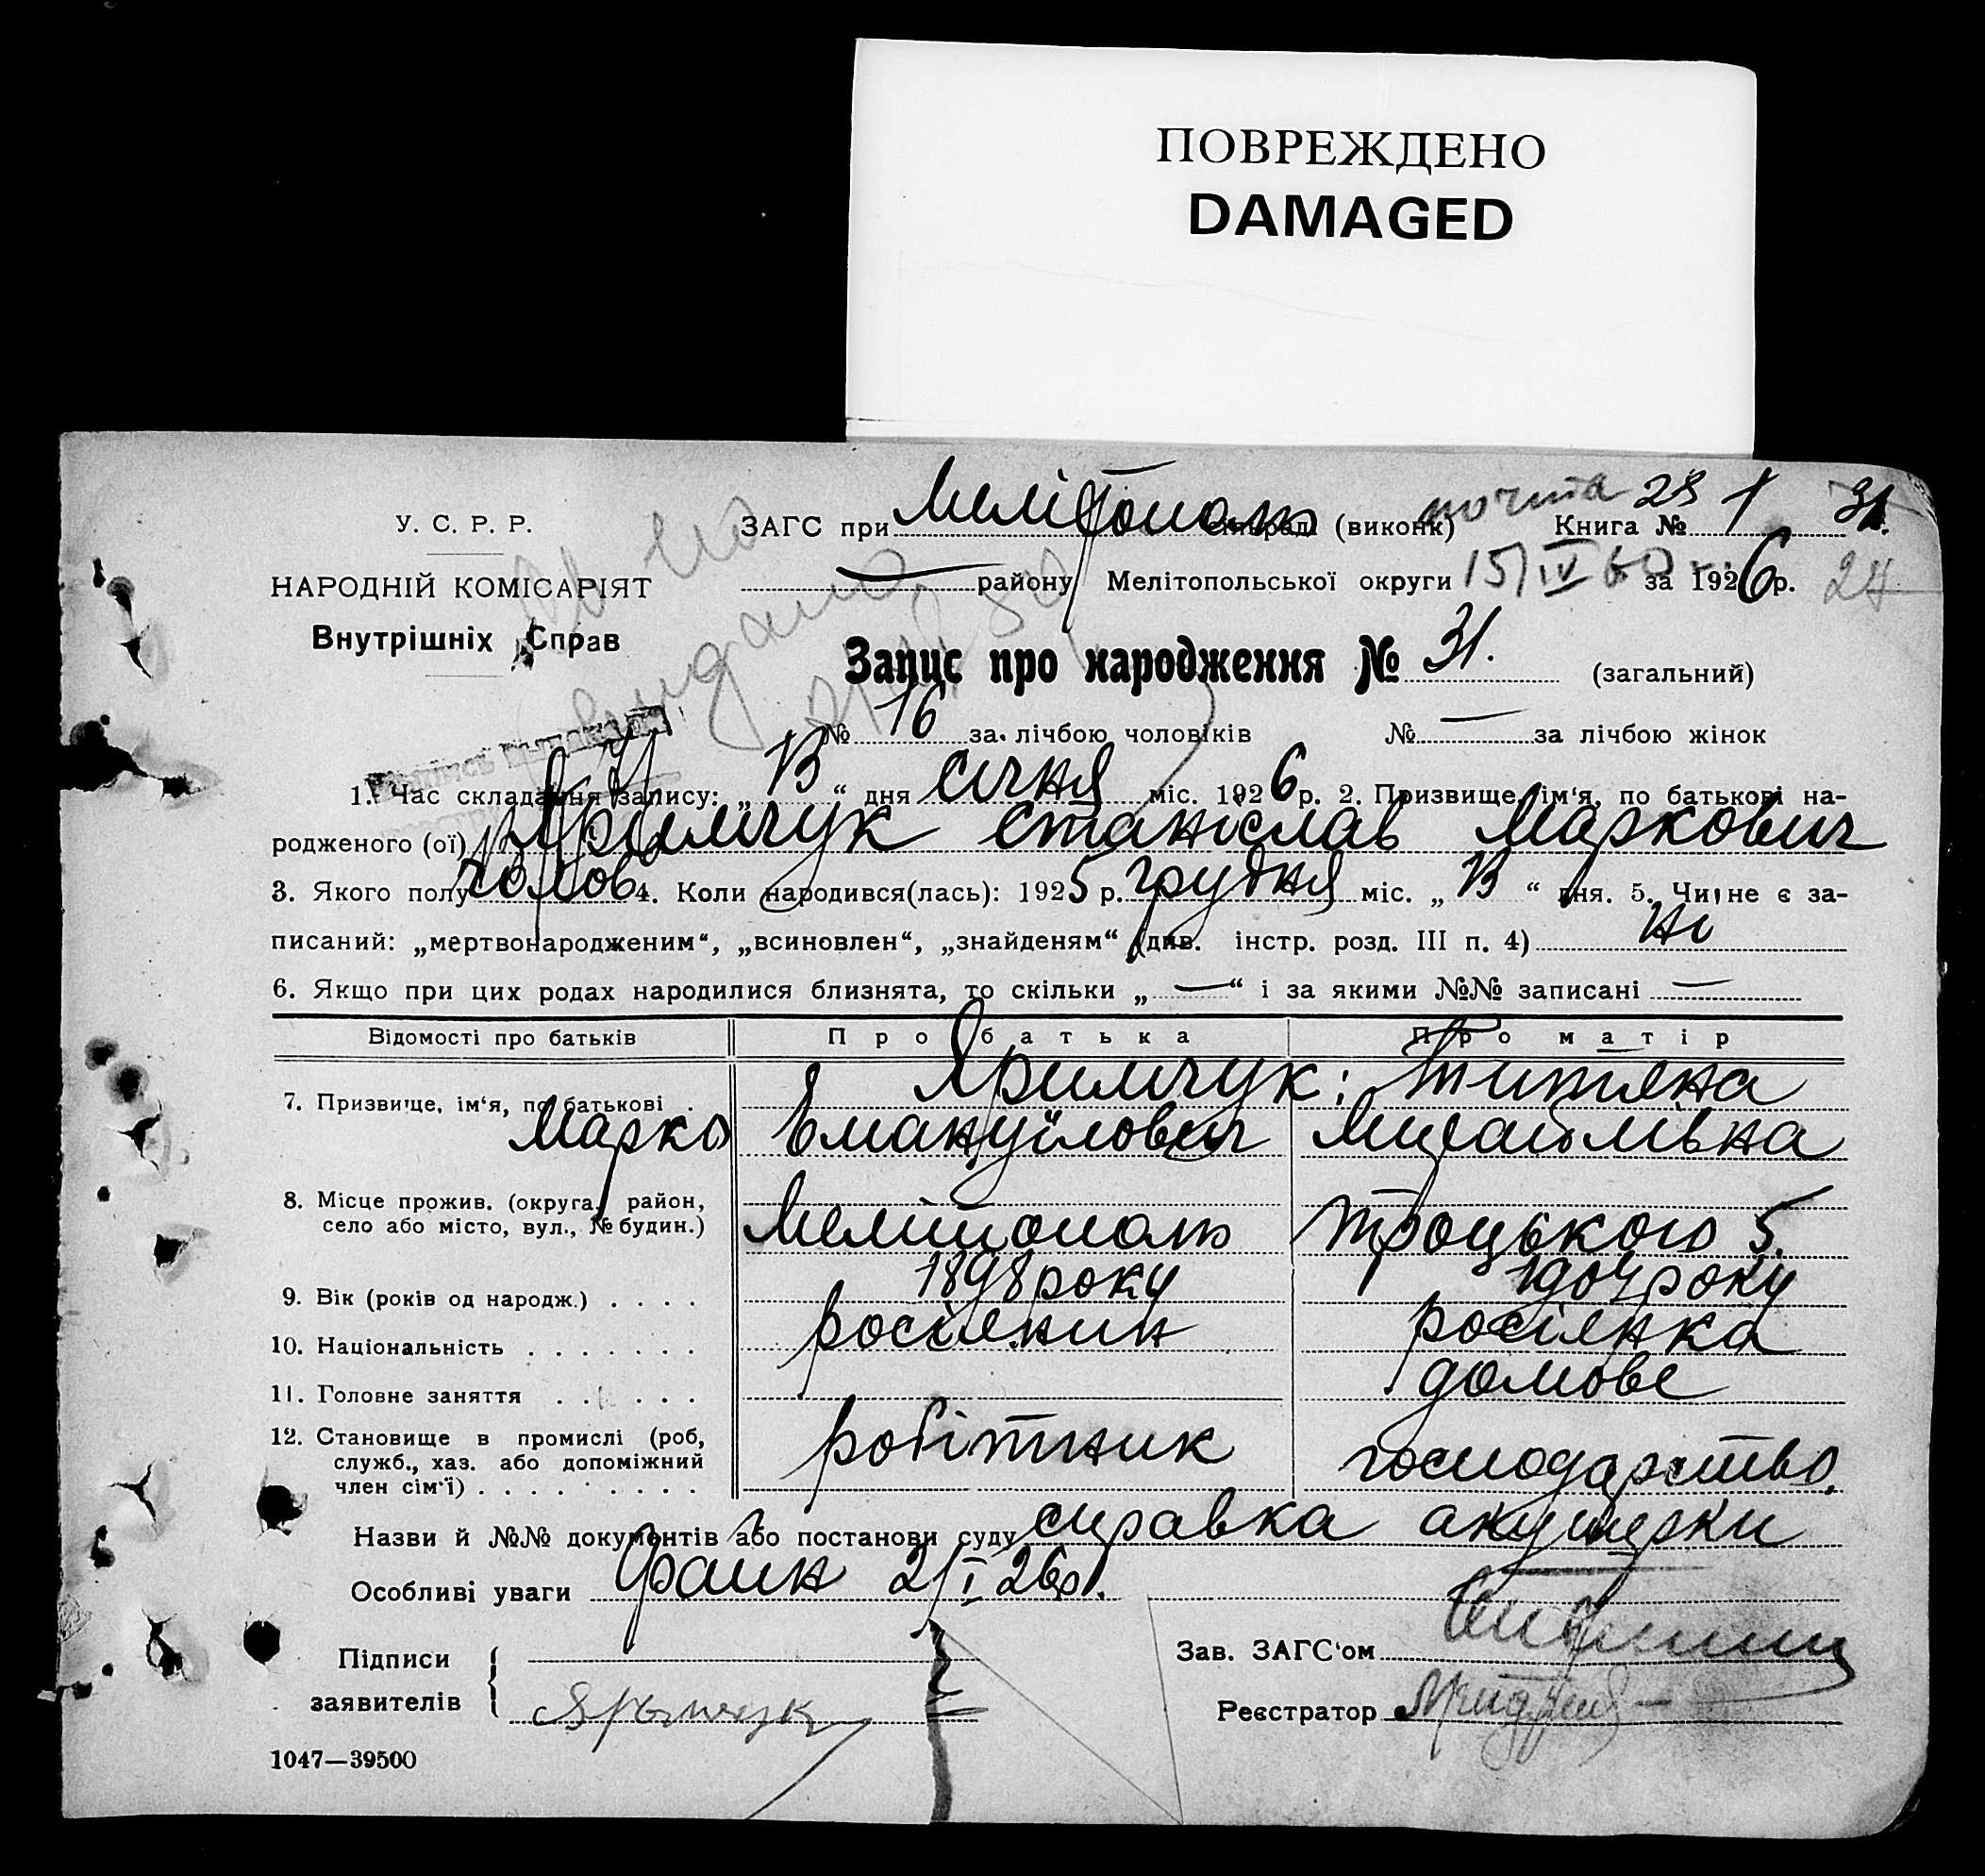 ПОВРЕЖДЕНО
DAMAGED
У. С. Р. Р.
НАРОДНІЙ КОМІСАРІЯТ
Внутрішніх Справ
ЗАГС при Мелітополь (виконк) почта 28 Книга № 1 31.
— району Мелітопольської округи 15/IV 60 за 1926 р. 24
Запис про народження № 31. (загальний)
№ 16 за лічбою чоловіків № — за лічбою жінок
1. Час складання запису: „ “ дня січня міс. 1926 р. 2. Призвище, ім‘я, по батькові на-
родженого (ої) Яримчук Станіслав Маркович
3. Якого полу чолов 4. Коли народився(лась): 1925 р. грудня міс. „ “ дня. 5. Чи не є за-
писаний: „мертвонародженим“, „всиновлен“, „знайденям“ (див. інстр. розд. III п. 4) ні
6. Якщо при цих родах народилися близнята, то скільки „ — “ і за якими №№ записані —
Відомості про батьків Про батька Про матір
7. Призвище, ім‘я, по батькові . Яримчук: Титяна
Марко Емануїлович Михайлівна
8. Місце прожив. (округа, район,
село або місто, вул., № будин.) Мелітополь Троцького 5.
9. Вік (років од народж.) . . . . 1898 року 1904 року
10. Національність . . . . . . . росіянин росіянка
11. Головне заняття . . . . . . домове
12. Становище в промислі (роб,
служб., хаз. або допоміжний
член сім‘ї) . . . . . . . . . робітник господарство.
Назви й №№ документів або постанови суду справка акушерки
Особливі уваги Файн 2/I 26р.
Підписи
заявителів Ярымчук
Зав. ЗАГС‘ом
Реєстратор
1047—39500